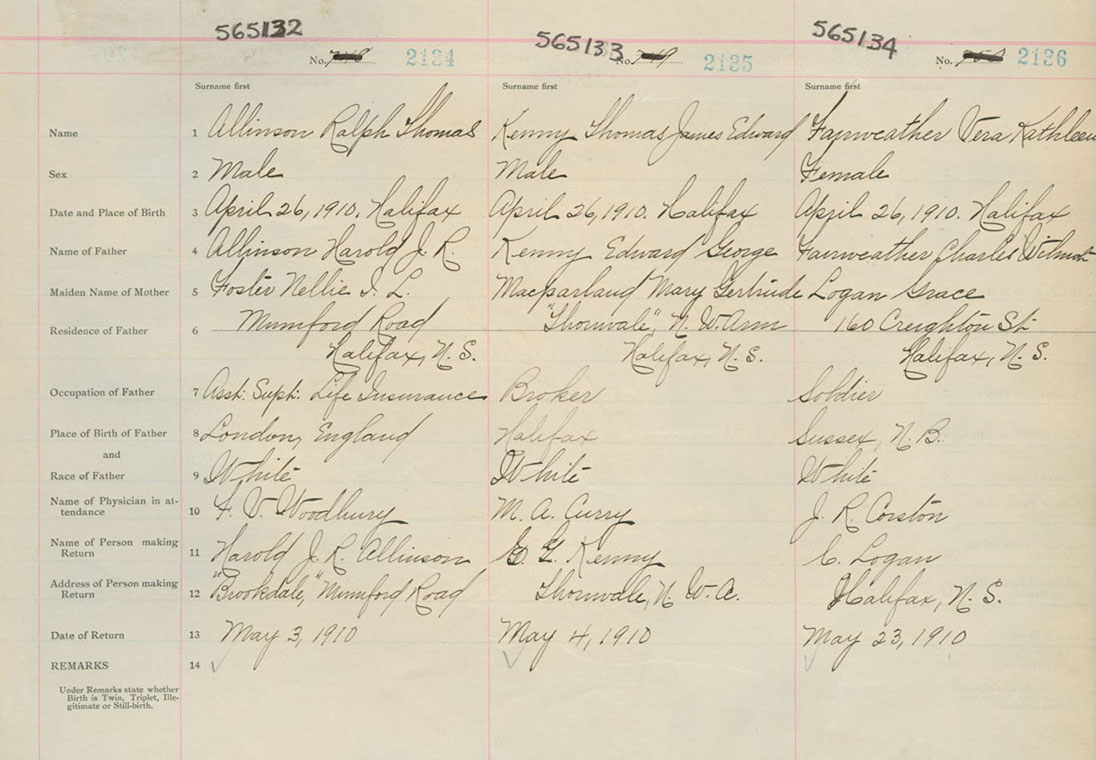 565132 565133 565134
No. 2134 No. 2135 No. 2136
Surname first Surname first Surname first
Name 1 Allinson Ralph Thomas Kenny Thomas James Edward Fairweather Vera Kathleen
Sex 2 Male Male Female
Date and Place of Birth 3 April 26, 1910. Halifax April 26, 1910. Halifax April 26, 1910. Halifax
Name of Father 4 Allinson Harold J. R. Kenny Edward George Fairweather Charles Wilmot
Maiden Name of Mother 5 Foster Nellie I. L. Macparland Mary Gertrude Logan Grace
Residence of Father 6 Mumford Road "Thornvale", N. W. Arm 160 Creighton St
Halifax, N. S. Halifax, N. S. Halifax, N. S.
Occupation of Father 7 Asst. Supt. Life Insurance Broker Soldier
Place of Birth of Father 8 London, England Halifax Sussex, N. B.
and
Race of Father 9 White White White
Name of Physician in at-
tendance 10 F. V. Woodbury M. A. Curry J. R. Corston
Name of Person making
Return 11 Harold J. R. Allinson E. G. Kenny C. Logan
Address of Person making
Return 12 "Brookdale," Mumford Road Thornvale, N. W. A. Halifax, N. S.
Date of Return 13 May 3, 1910 May 4, 1910 May 23, 1910
REMARKS 14
Under Remarks state whether
Birth is Twin, Triplet, Ille-
gitimate or Still-birth.